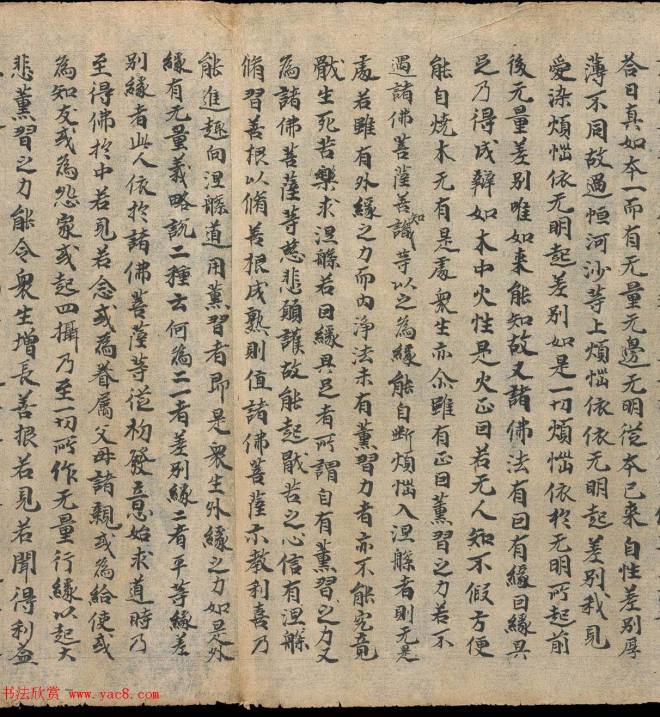 答曰真如本一而有无量无邊无明從本已来自性差別厚
薄不同故過恒河沙等上煩惱依依无明起差別我見
愛染煩惱依无明起差別如是一切煩惱依於无明所起前
後无量差別唯如来能知故又諸佛法有因有緣因緣具
足乃得成辦如木中火性是火正因若无人知不假方便
能自燒木无有是處衆生亦尒雖有正因薰習之力若不
遇諸佛菩薩善知識等以之為緣能自断煩惱入涅槃者則无是
處若雖有外緣之力而内淨法未有薰習力者亦不能究竟
猒生死苦樂求涅槃若因緣具足者所謂自有薰習之力又
為諸佛菩薩等慈悲願護故能起猒苦之心信有涅槃
脩習善根以脩善根成熟則值諸佛菩薩示教利喜乃
能進趣向涅槃道用薰習者即是衆生外緣之力如是外
緣有无量義略說二種云何為二一者差別緣二者平等緣差
別緣者此人依於諸佛菩薩等從初發意始求道時乃
至得佛於中若見若念或為眷屬父母諸親或為給使或
為知友或為怨家或起四攝乃至一切所作无量行緣以起大
悲薰習之力能令衆生增長善根若見若聞得利益
书法欣赏 www.yac8.com